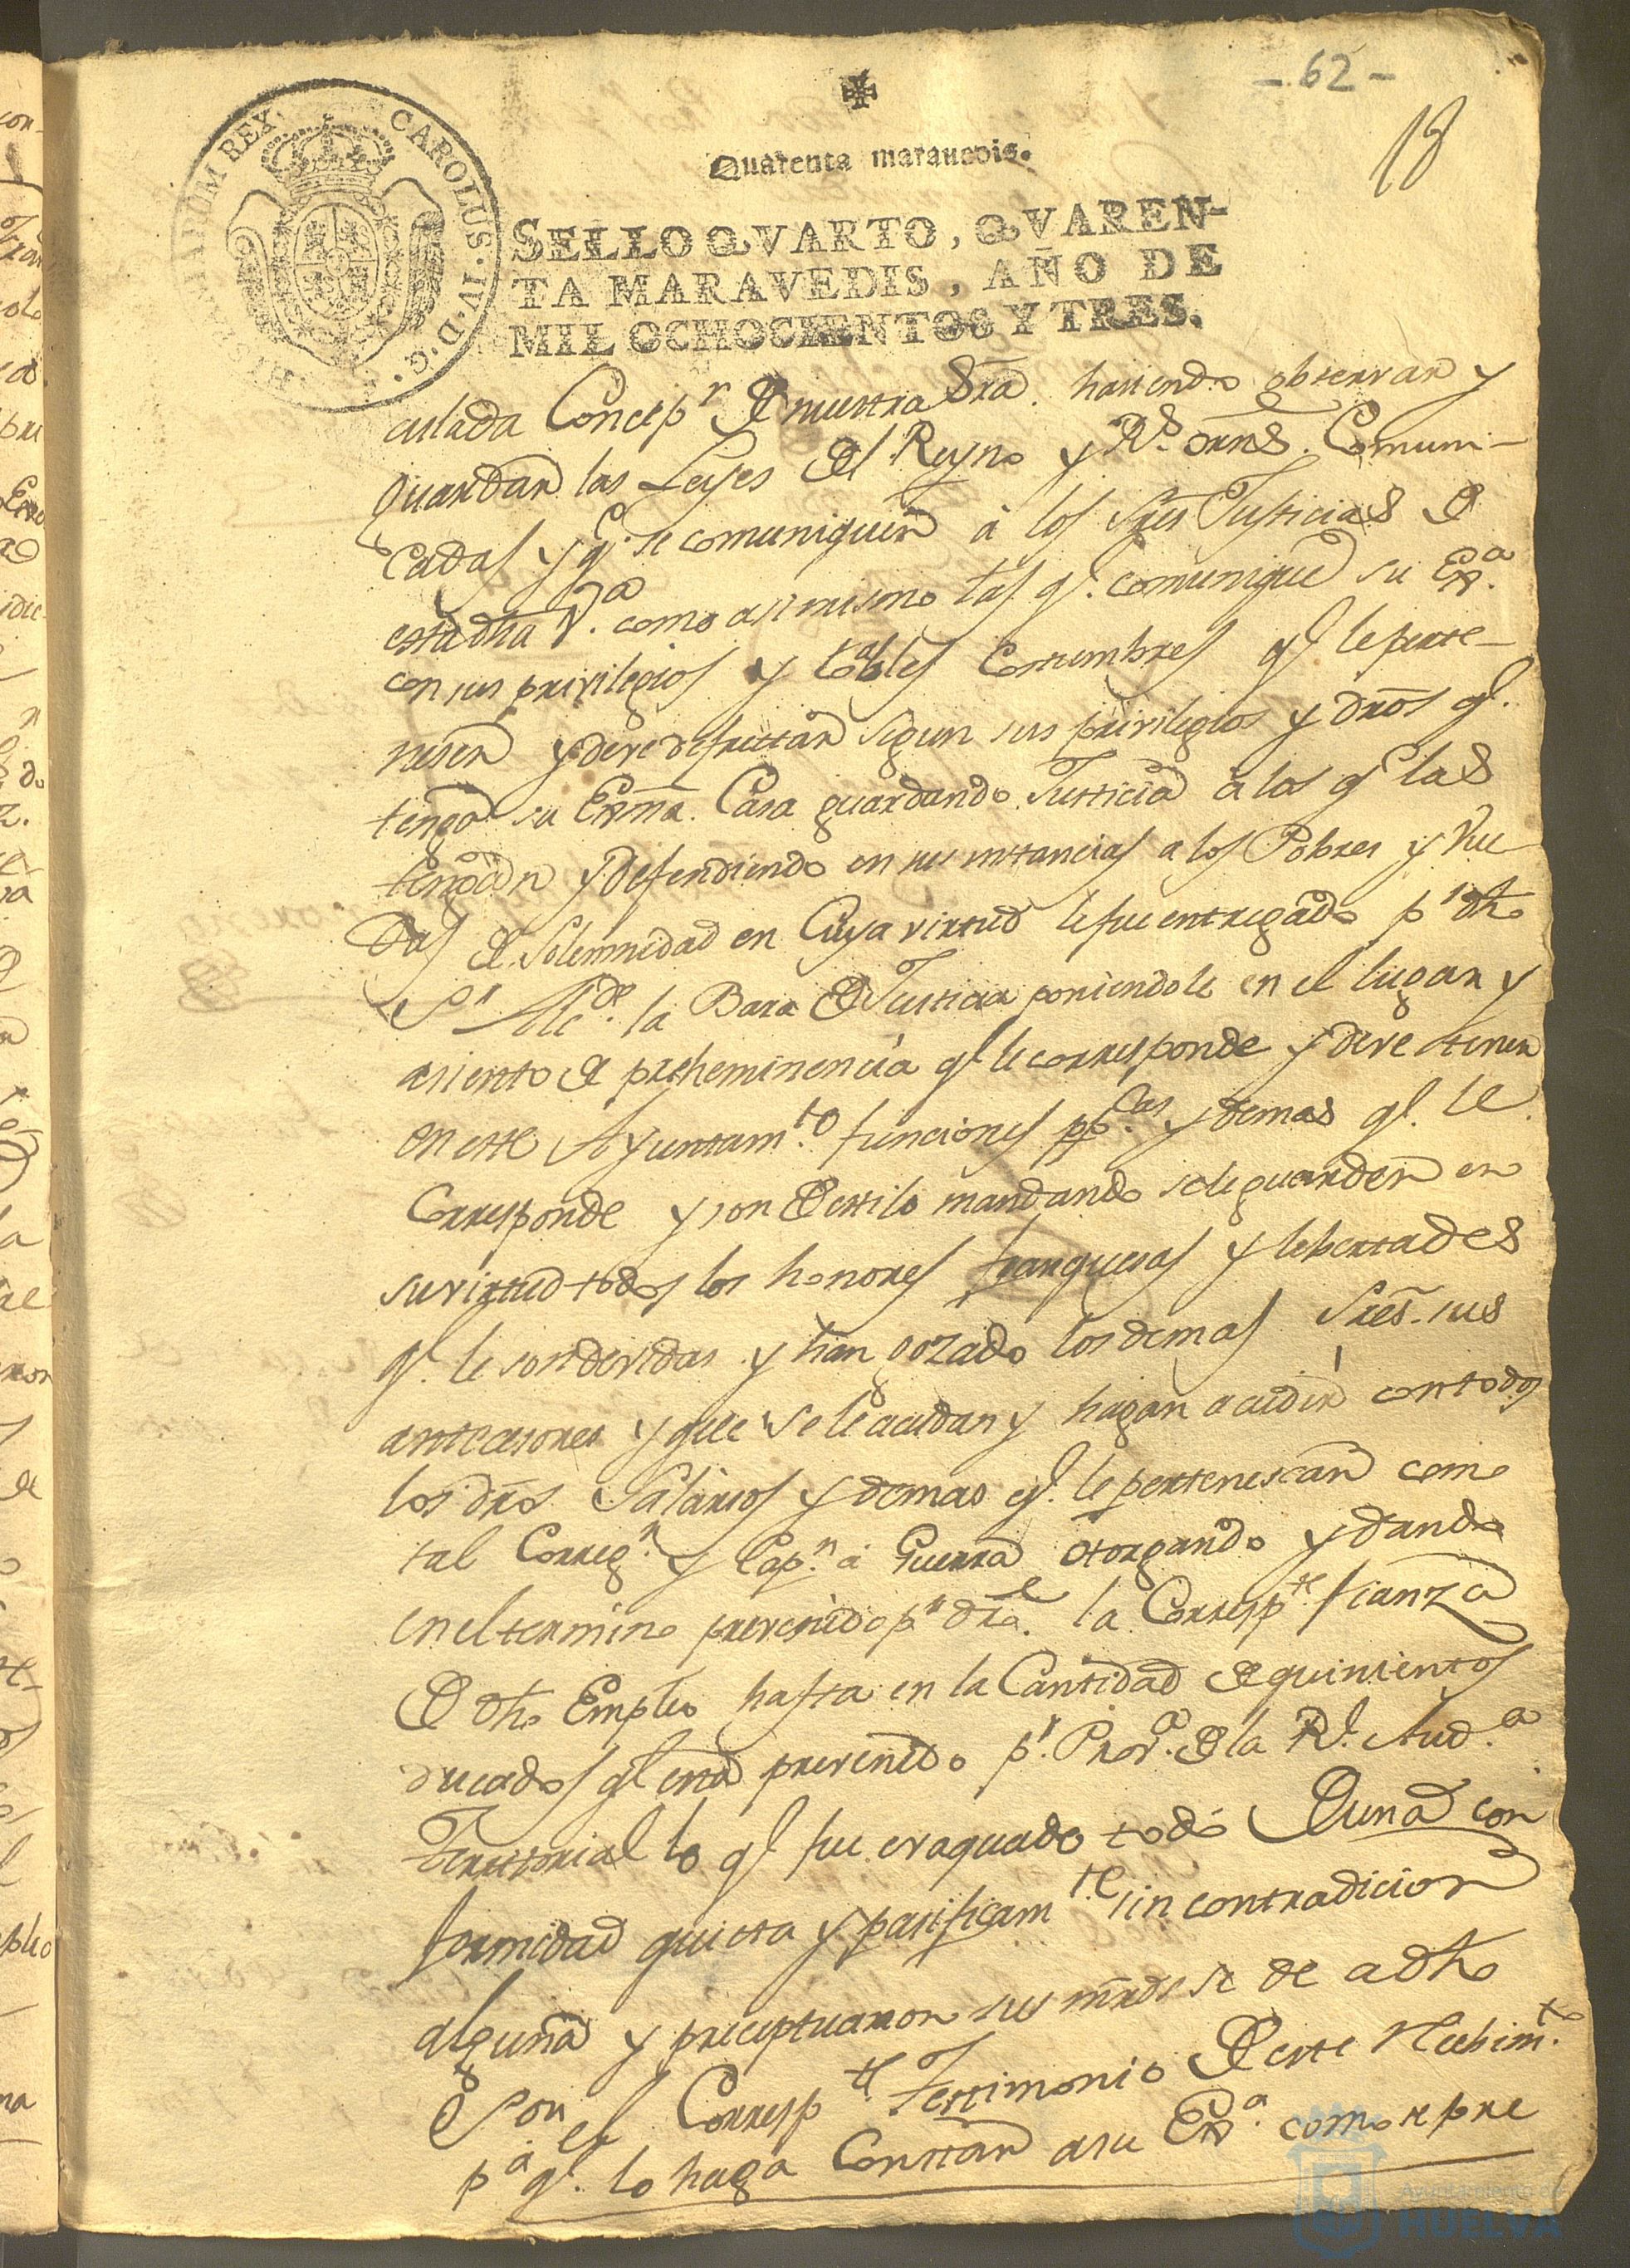 - 62 -
18
Quarenta maravedis.
HISPANIARUM REX. CAROLUS·IV·D·G·
SELLO QVARTO, QVAREN-
TA MARAVEDIS, AÑO DE
MIL OCHOCIENTOS Y TRES.
culada Concepn. de nuestra Sra. haciendo observar y
guardar las Leyes del Reyno y Rs. orns. Comuni-
cadas y q. se comuniquen à los Sres Justicias de
esta dha Va. como asi mismo las q. comunique su Exa.
con sus privilegios y loables Costumbres q. le perte-
nesen y deve desfrutar segun sus privilegios y dros q.
tenga su Exma. Casa guardando Justicia à los q. las
tengan y defendiendo en sus instancias a los Pobres y Viu
das de Solemnidad en Cuya virtud le fue entregado pr dho
Sr Alcde. la Bara de Justicia poniendole en el lugar y
asiento de preheminencia q. le corresponde y deve tener
en este Ayuntamto. funciones ppcas. y demas q. le
Corresponde y son de estilo mandando se le guarden en
su virtud todos los honores franquesas y libertades
q. le son devidas y han gozado los demas Sres. sus
antecesores y que se le acudan y hagan acudir con todos
los dros Salarios y demas q. le pertenescan como
tal Corregn. y Capn. à Guerra otorgando y dando
en el termino prevenido pr dro. la Correspte. fianza
de dho Empleo hasta en la Cantidad de quinientos
ducados q. está prevenido pr. Prova. de la Rl. Auda.
Territorial lo q. fue evaquado todo de una con
formidad quieta y pasificamte. sin contradicion
alguna y preceptuaron sus mrds se de a dho
Sor el Correspte Testimonio de este Recibimto.
pa q. lo haga Constar a su Exa. como repre
Ayuntamiento de
HUELVA